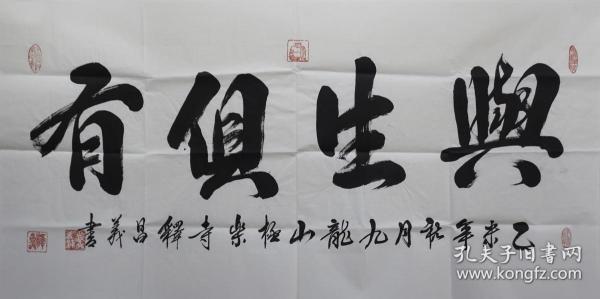 與生俱有
乙未年秋月九龍山極樂寺釋昌義書
孔夫子旧书网
www.kongfz.com